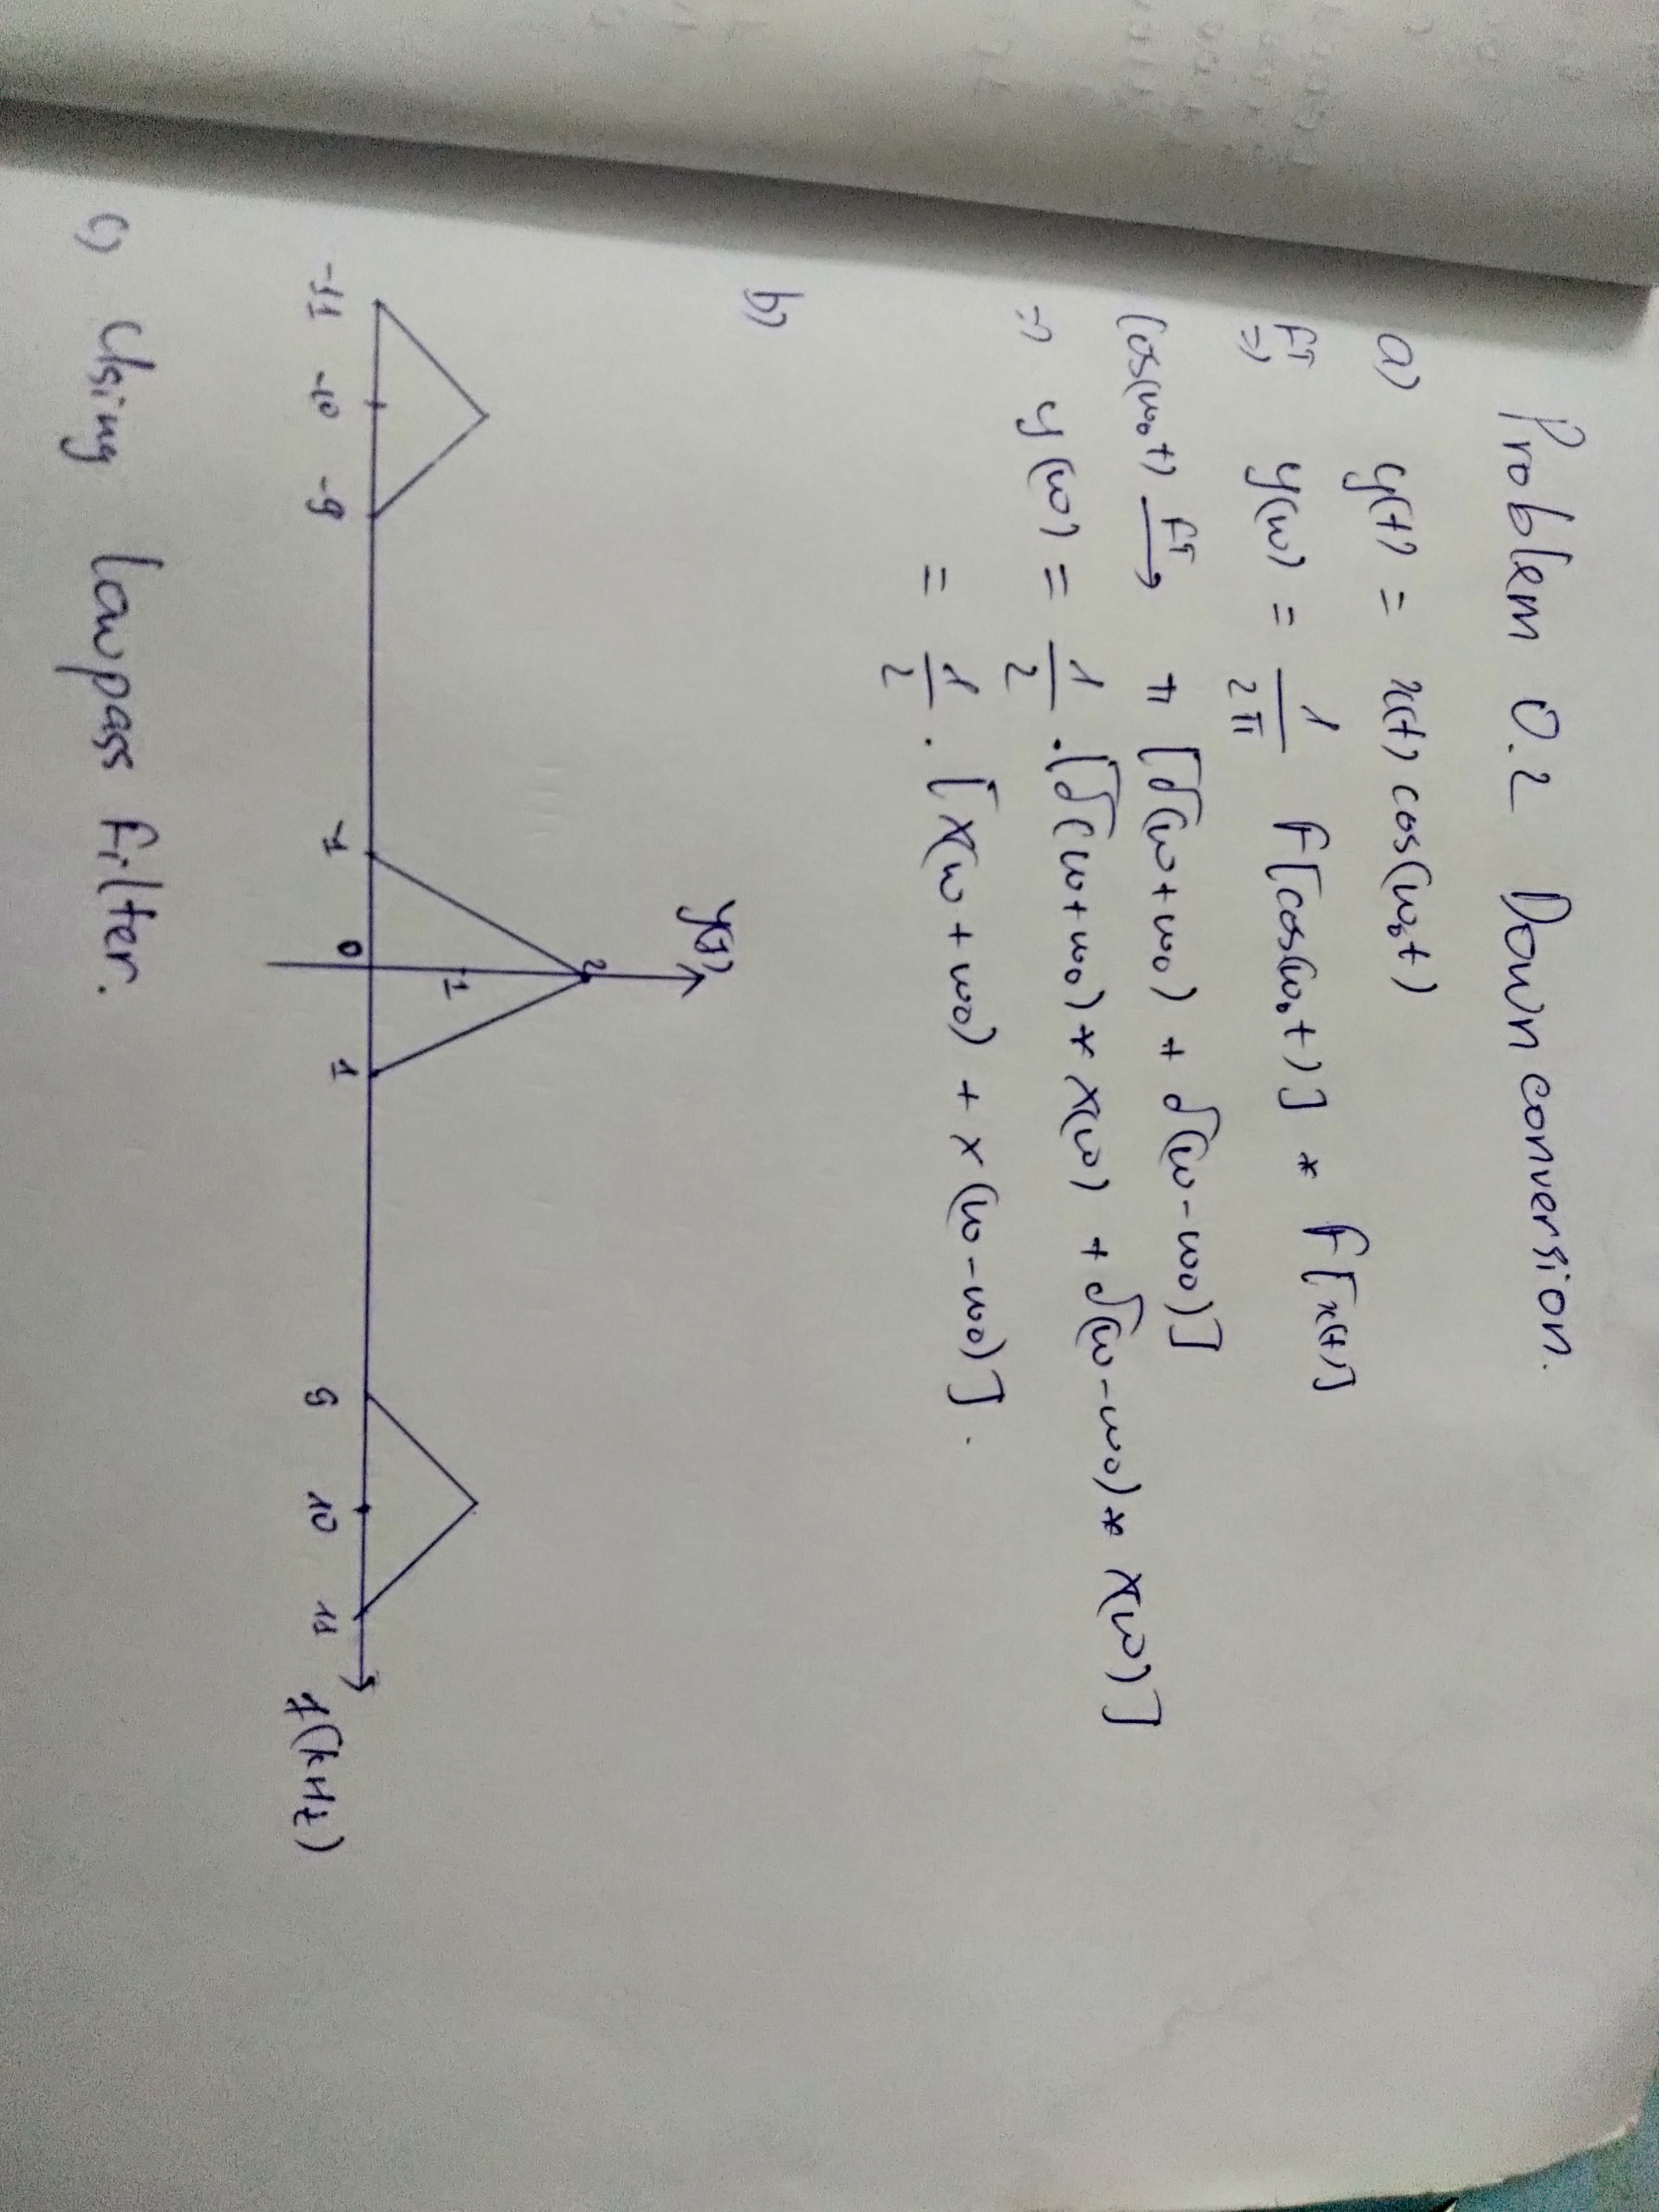 Problem 0.2 Down conversion.
a) y(t) = x(t) cos(ω₀t)
FT ⇒ y(ω) = 1/2π F[cos(ω₀t)] * F[x(t)]
cos(ω₀t) FT→ π [δ(ω+ω₀) + δ(ω-ω₀)]
⇒ y(ω) = 1/2 . [δ(ω+ω₀) * x(ω) + δ(ω-ω₀) * x(ω)]
= 1/2 . [x(ω+ω₀) + x(ω-ω₀)] .
b)
y(f)
2
1
-11 -10 -9 -1 0 1 9 10 11 f(kHz)
c) Using lowpass filter.